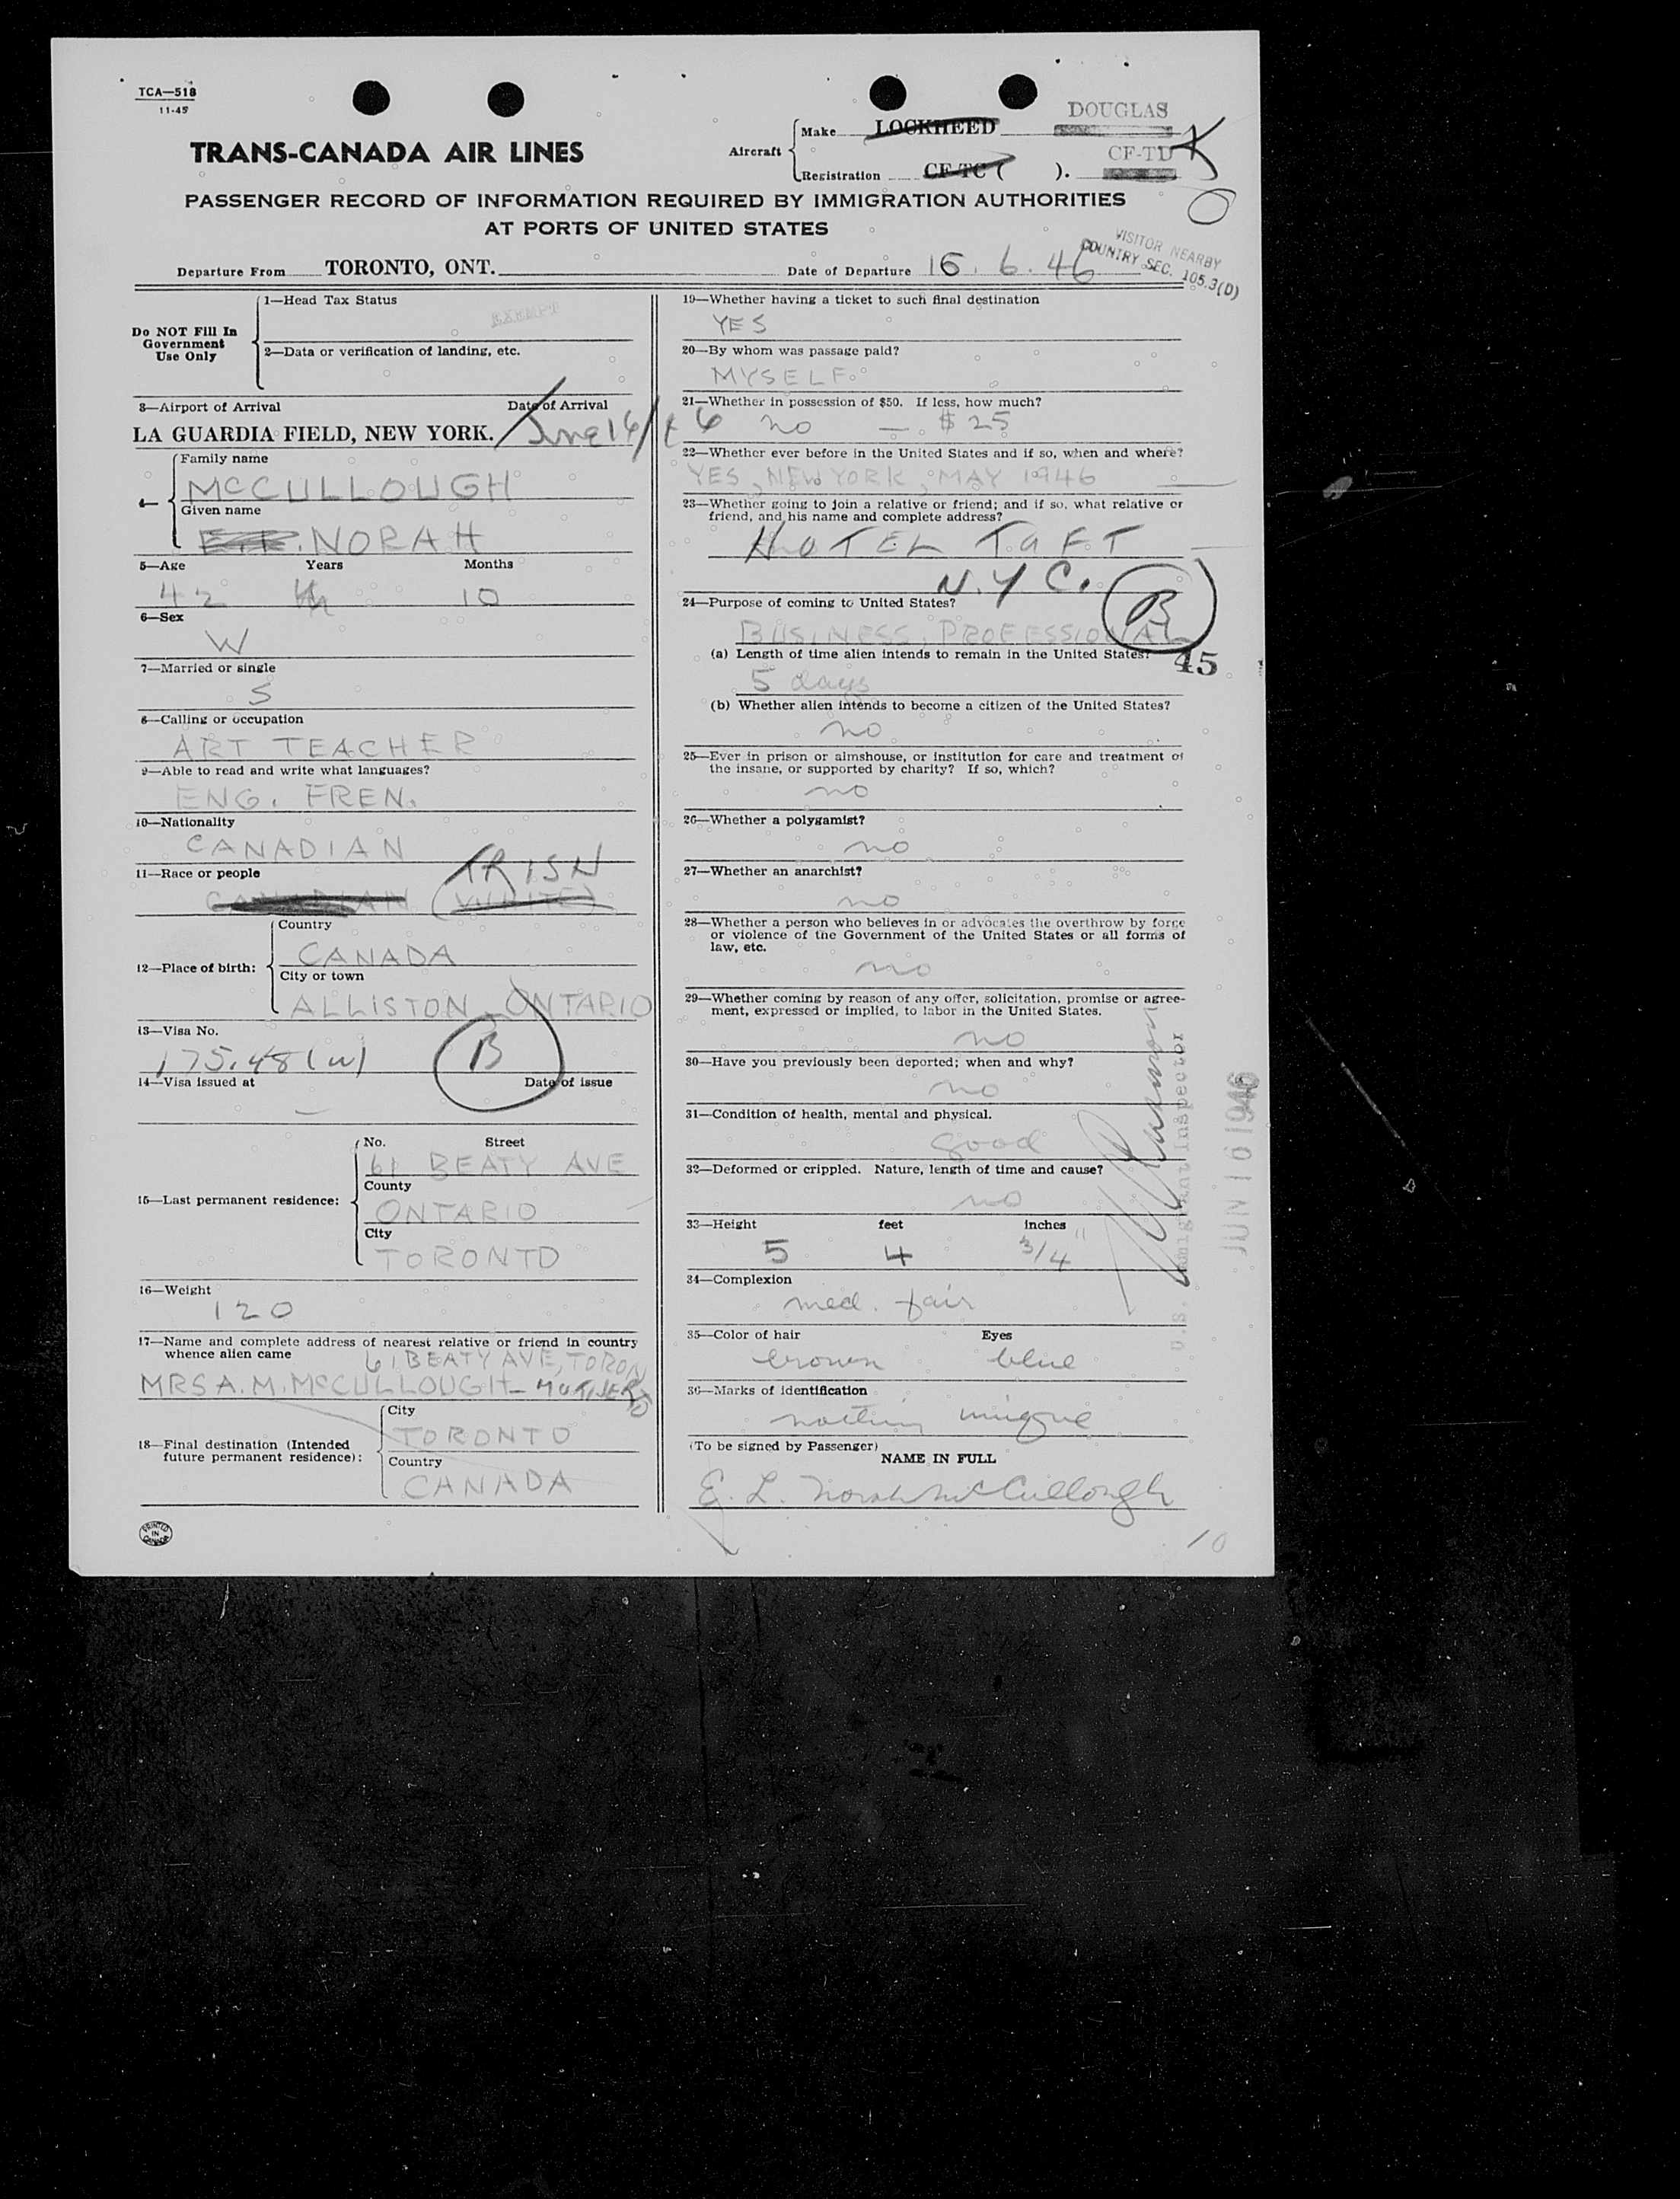 TCA—518
11-45
DOUGLAS
Aircraft
Make LOCKHEED
CF-TD
Registration CF-TC ( ).
TRANS-CANADA AIR LINES
PASSENGER RECORD OF INFORMATION REQUIRED BY IMMIGRATION AUTHORITIES
AT PORTS OF UNITED STATES
VISITOR NEARBY
COUNTRY SEC. 105.3(D)
Departure From TORONTO, ONT. Date of Departure 16.6.46
Do NOT Fill In
Government
Use Only
1—Head Tax Status
EXEMPT
2—Data or verification of landing, etc.
3—Airport of Arrival Date of Arrival
LA GUARDIA FIELD, NEW YORK. June 16/46
4—
Family name
McCULLOUGH
Given name
NORAH
5—Age Years Months
42 10
6—Sex
W
7—Married or single
S
8—Calling or occupation
ART TEACHER
9—Able to read and write what languages?
ENG. FREN.
10—Nationality
CANADIAN
11—Race or people IRISH
CANADIAN (WHITE)
12—Place of birth:
Country
CANADA
City or town
ALLISTON, ONTARIO
13—Visa No.
175.48 (w) B
14—Visa issued at Date of issue
—
15—Last permanent residence:
No. Street
61 BEATY AVE
County
ONTARIO
City
TORONTO
16—Weight
120
17—Name and complete address of nearest relative or friend in country
whence alien came 61 BEATY AVE, TORONTO
MRS A. M. McCULLOUGH - MOTHER
18—Final destination (Intended
future permanent residence):
City
TORONTO
Country
CANADA
PRINTED
IN
CANADA
19—Whether having a ticket to such final destination
YES
20—By whom was passage paid?
MYSELF.
21—Whether in possession of $50. If less, how much?
no — $25
22—Whether ever before in the United States and if so, when and where?
YES, NEW YORK, MAY 1946
23—Whether going to join a relative or friend; and if so, what relative or
friend, and his name and complete address?
HOTEL TAFT
N.Y C.
24—Purpose of coming to United States? B
BUSINESS, PROFESSIONAL
(a) Length of time alien intends to remain in the United States? 45
5 days
(b) Whether alien intends to become a citizen of the United States?
no
25—Ever in prison or almshouse, or institution for care and treatment of
the insane, or supported by charity? If so, which?
no
26—Whether a polygamist?
no
27—Whether an anarchist?
no
28—Whether a person who believes in or advocates the overthrow by force
or violence of the Government of the United States or all forms of
law, etc.
no
29—Whether coming by reason of any offer, solicitation, promise or agree-
ment, expressed or implied, to labor in the United States.
no
30—Have you previously been deported; when and why?
no
31—Condition of health, mental and physical.
good
32—Deformed or crippled. Nature, length of time and cause?
no
33—Height feet inches
5 4 3/4"
34—Complexion
med. fair
35—Color of hair Eyes
brown blue
36—Marks of identification
nothing unique
(To be signed by Passenger)
NAME IN FULL
E. L. Norah McCullough
U.S. Immigrant Inspector
JUN 16 1946
10